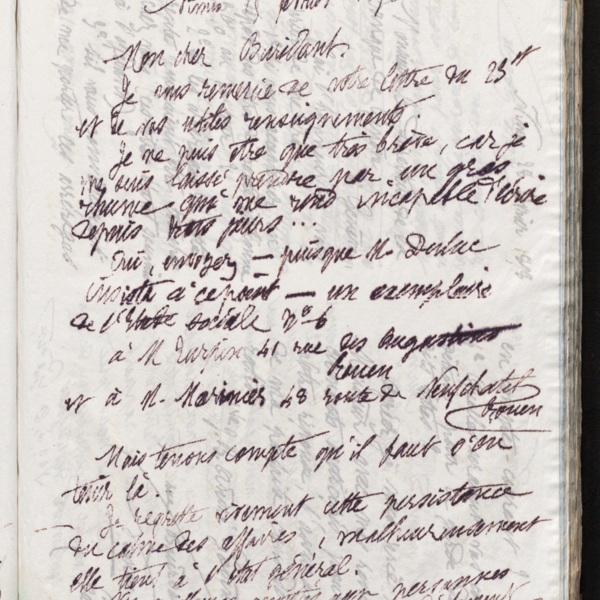 Mon cher Buridant.
Je vous remercie de votre lettre du 23ct
et de vos utiles renseignements.
Je ne puis être que très bref, car je
me suis laissé prendre par un gros
rhume qui me rend incapable d'écrire
depuis trois jours...
Oui, envoyez — puisque M. Duluc
insiste à ce point — un exemplaire
de l'Etude sociale Nº 6
à M Turpin 41 rue des Augustins
Rouen
et à M. Marinier 48 route de Neufchatel
Rouen
Mais tenons compte qu'il faut s'en
tenir là.
Je regrette vivement cette persistance
du calme des affaires, malheureusement
elle tient à l'état général.
personnes